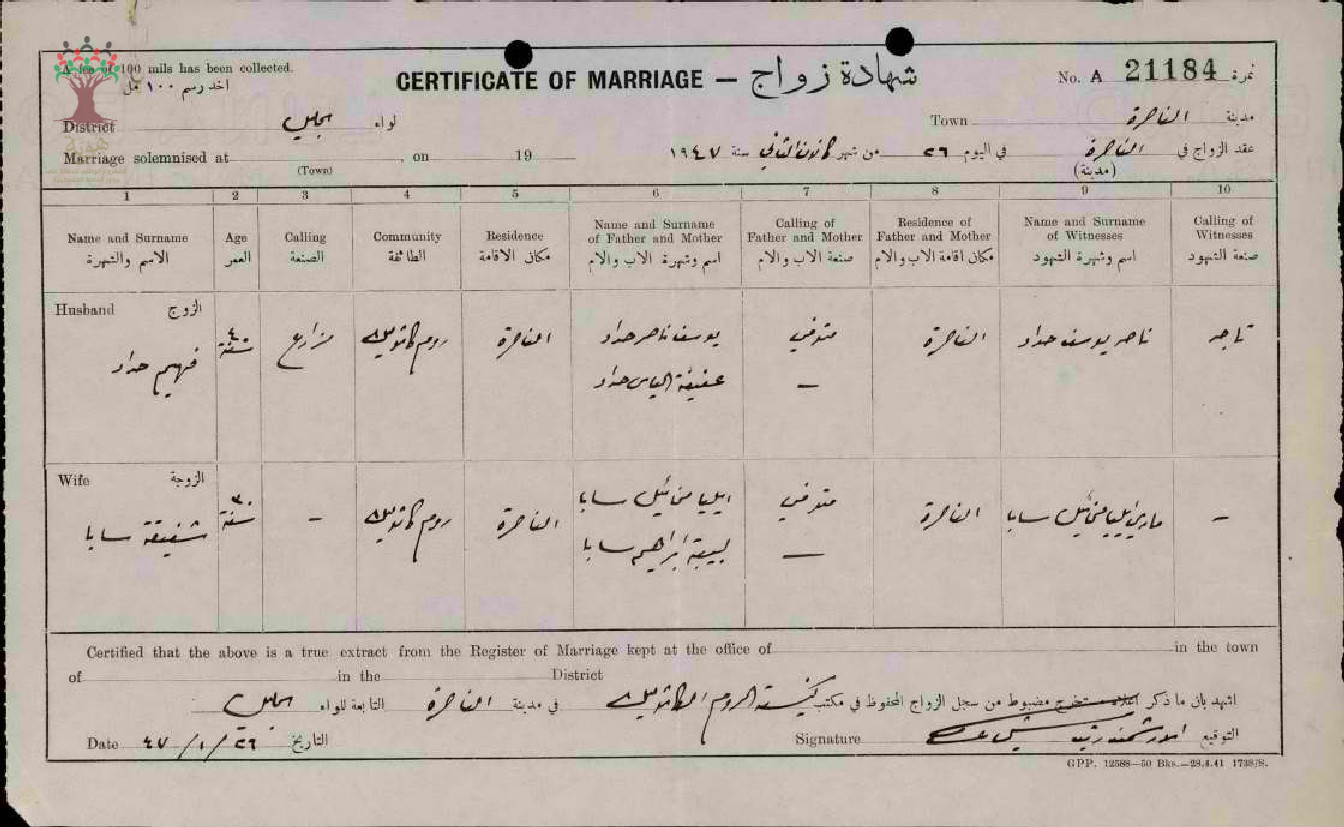 A fee of 100 mils has been collected.
اخذ رسم ١٠٠ مل
CERTIFICATE OF MARRIAGE – شهادة زواج
No. A 21184 نمرة
District الجليل لواء
Town الناصرة مدينة
Marriage solemnised at , on 19
(Town)
عقد الزواج في الناصرة في اليوم ٢٦ من شهر كانون الثاني سنة ١٩٤٧
(مدينة)
1 2 3 4 5 6 7 8 9 10
Name and Surname
الاسم والشهرة
Age
العمر
Calling
الصنعة
Community
الطائفة
Residence
مكان الاقامة
Name and Surname
of Father and Mother
اسم وشهرة الاب والام
Calling of
Father and Mother
صنعة الاب والام
Residence of
Father and Mother
مكان اقامة الاب والام
Name and Surname
of Witnesses
اسم وشهرة الشهود
Calling of
Witnesses
صنعة الشهود
Husband الزوج
فهيم حداد
٤٠
سنة
مزارع
روم كاثوليك
الناصرة
يوسف ناصر حداد
عفيفة الياس حداد
متوفي
–
الناصرة
ناصر يوسف حداد
تاجر
Wife الزوجة
شفيقة سابا
٣٠
سنة
–
روم كاثوليك
الناصرة
ايليا مخائيل سابا
لبيبة ابراهيم سابا
متوفي
–
الناصرة
ايليا مخائيل سابا
–
Certified that the above is a true extract from the Register of Marriage kept at the office of in the town
of in the District
اشهد بان ما ذكر اعلاه مستخرج مضبوط من سجل الزواج المحفوظ في مكتب كنيسة الروم الكاثوليك في مدينة الناصرة التابعة للواء الجليل
Date ٢٦/١/٤٧ التاريخ
Signature الارشمندريت التوقيع
GPP. 12588—50 Bks.—28.4.41 1738/S.